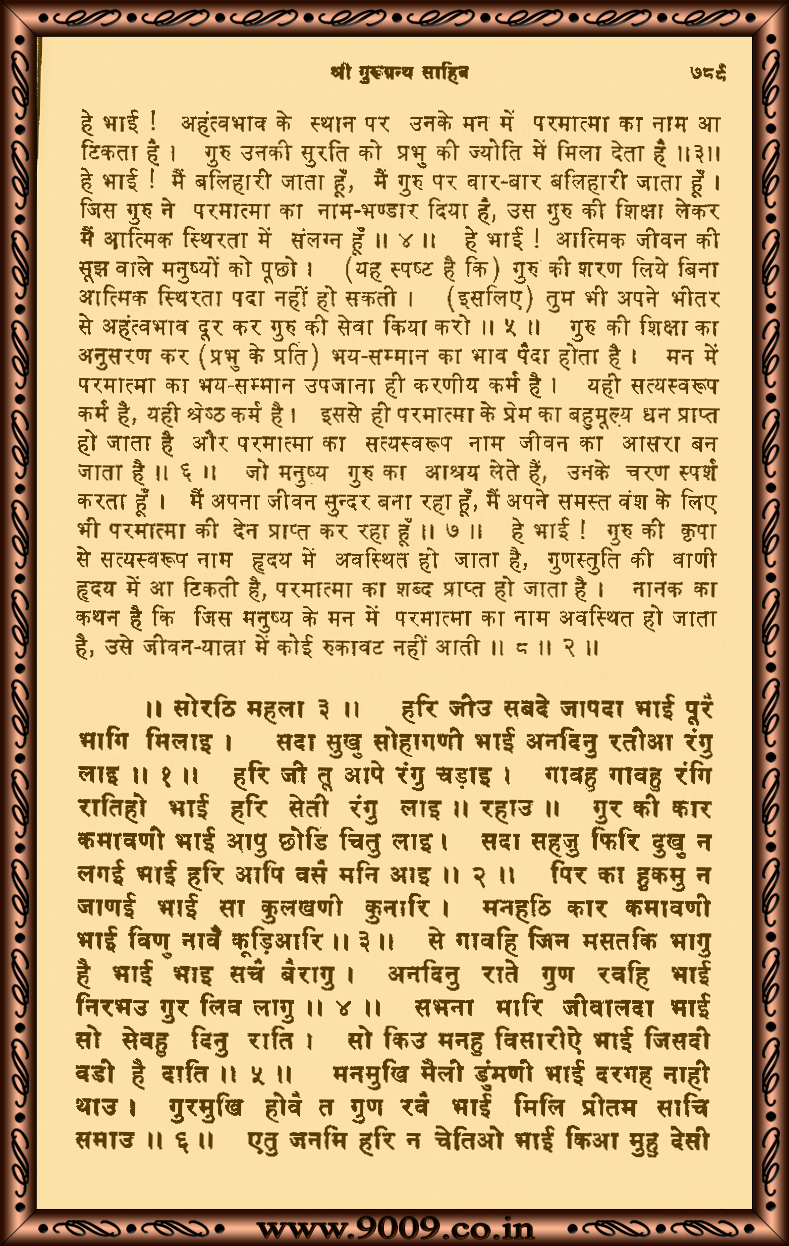 श्री गुरूग्रन्थ साहिब ७८९
हे भाई ! अहंत्वभाव के स्थान पर उनके मन में परमात्मा का नाम आ
टिकता है । गुरु उनकी सुरति को प्रभु की ज्योति में मिला देता है ॥३॥
हे भाई ! मैं बलिहारी जाता हूँ, मैं गुरु पर बार-बार बलिहारी जाता हूँ ।
जिस गुरु ने परमात्मा का नाम-भण्डार दिया है, उस गुरु की शिक्षा लेकर
मैं आत्मिक स्थिरता में संलग्न हूँ ॥ ४ ॥ हे भाई ! आत्मिक जीवन की
सूझ वाले मनुष्यों को पूछो । (यह स्पष्ट है कि) गुरु की शरण लिये बिना
आत्मिक स्थिरता पदा नहीं हो सकती । (इसलिए) तुम भी अपने भीतर
से अहंत्वभाव दूर कर गुरु की सेवा किया करो ॥ ५ ॥ गुरु की शिक्षा का
अनुसरण कर (प्रभु के प्रति) भय-सम्मान का भाव पैदा होता है । मन में
परमात्मा का भय-सम्मान उपजाना ही करणीय कर्म है । यही सत्यस्वरूप
कर्म है, यही श्रेष्ठ कर्म है । इससे ही परमात्मा के प्रेम का बहुमूल्य धन प्राप्त
हो जाता है और परमात्मा का सत्यस्वरूप नाम जीवन का आसरा बन
जाता है ॥ ६ ॥ जो मनुष्य गुरु का आश्रय लेते हैं, उनके चरण स्पर्श
करता हूँ । मैं अपना जीवन सुन्दर बना रहा हूँ, मैं अपने समस्त वंश के लिए
भी परमात्मा की देन प्राप्त कर रहा हूँ ॥ ७ ॥ हे भाई ! गुरु की कृपा
से सत्यस्वरूप नाम हृदय में अवस्थित हो जाता है, गुणस्तुति की वाणी
हृदय में आ टिकती है, परमात्मा का शब्द प्राप्त हो जाता है । नानक का
कथन है कि जिस मनुष्य के मन में परमात्मा का नाम अवस्थित हो जाता
है, उसे जीवन-यात्रा में कोई रुकावट नहीं आती ॥ ८ ॥ २ ॥
॥ सोरठि महला ३ ॥ हरि जीउ सबदे जापदा भाई पूरै
भागि मिलाइ । सदा सुखु सोहागणी भाई अनदिनु रतीआ रंगु
लाइ ॥ १ ॥ हरि जी तू आपे रंगु चड़ाइ । गावहु गावहु रंगि
रातिहो भाई हरि सेती रंगु लाइ ॥ रहाउ ॥ गुर की कार
कमावणी भाई आपु छोडि चितु लाइ । सदा सहजु फिरि दुखु न
लगई भाई हरि आपि वसै मनि आइ ॥ २ ॥ पिर का हुकमु न
जाणई भाई सा कुलखणी कुनारि । मनहठि कार कमावणी
भाई विणु नावै कूड़िआरि ॥ ३ ॥ से गावहि जिन मसतकि भागु
है भाई भाइ सचै बैरागु । अनदिनु राते गुण रवहि भाई
निरभउ गुर लिव लागु ॥ ४ ॥ सभना मारि जीवालदा भाई
सो सेवहु दिनु राति । सो किउ मनहु विसारीऐ भाई जिसदी
वडी है दाति ॥ ५ ॥ मनमुखि मैली डुंमणी भाई दरगह नाही
थाउ । गुरमुखि होवै त गुण रवै भाई मिलि प्रीतम साचि
समाउ ॥ ६ ॥ एतु जनमि हरि न चेतिओ भाई किआ मुहु देसी
www.9009.co.in